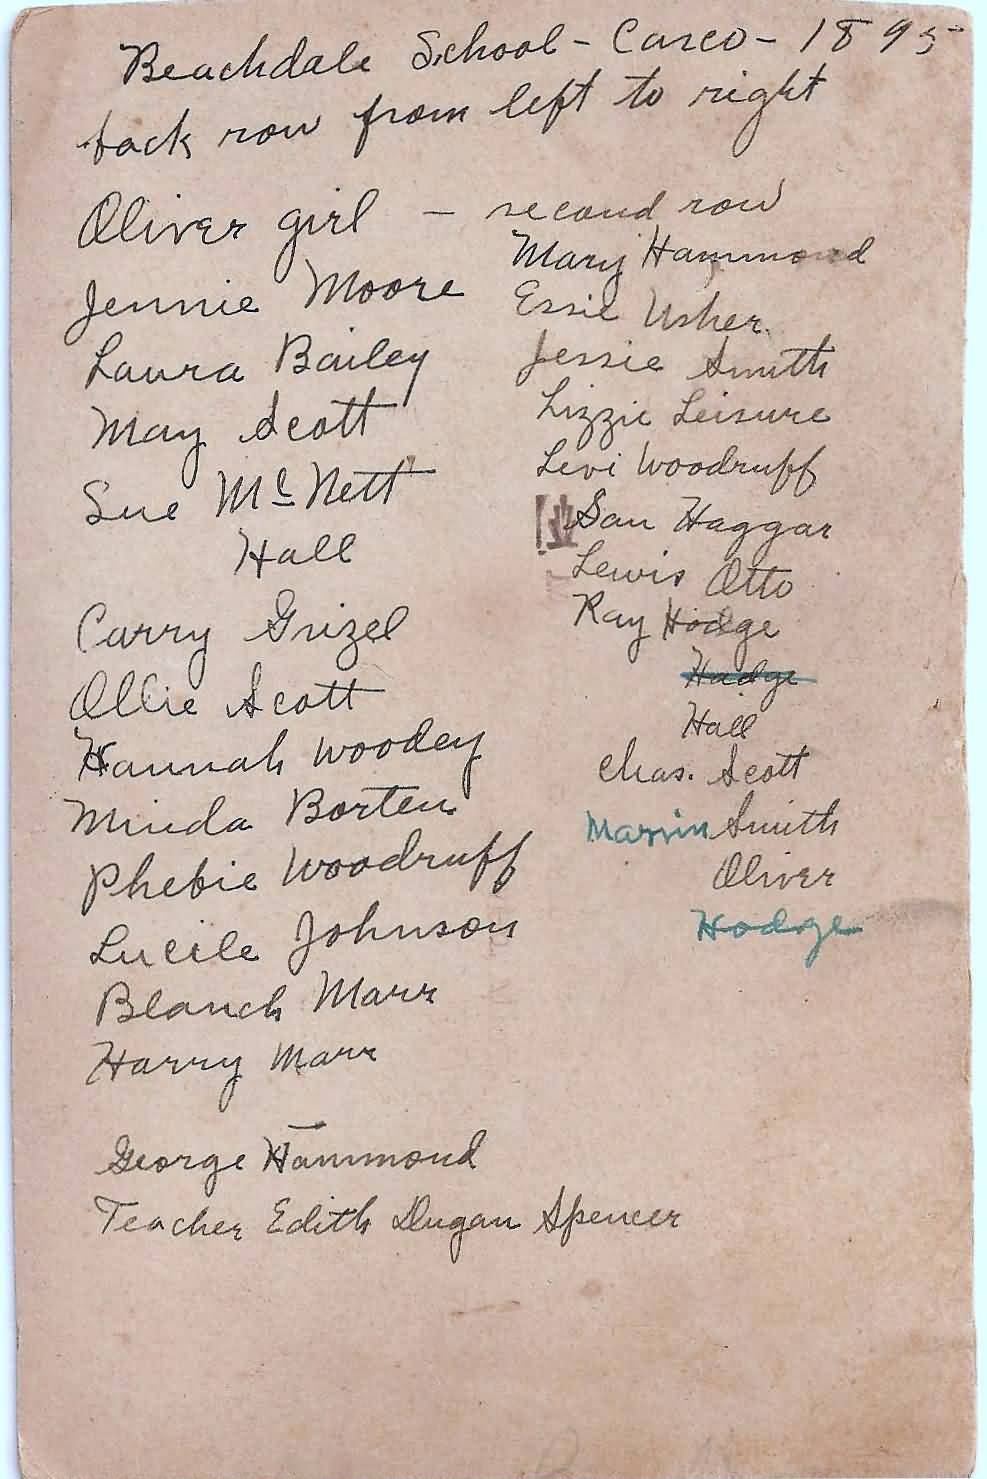 Beachdale School - Casco - 1895
back row from left to right
Oliver girl - second row
Jennie Moore
Laura Bailey
May Scott
Sue McNett
Hall
Carry Grizel
Ollie Scott
Hannah Woodey
Minda Borten
Phebie Woodruff
Lucile Johnson
Blanch Marr
Harry Marr
George Hammond
Teacher Edith Dugan Spencer
Mary Hammond
Essie Usher
Jessie Smith
Lizzie Leisure
Levi Woodruff
San Haggar
Lewis Otto
Ray Hodge
Hadge
Hall
Chas. Scott
Marvin Smith
Oliver
Hodge